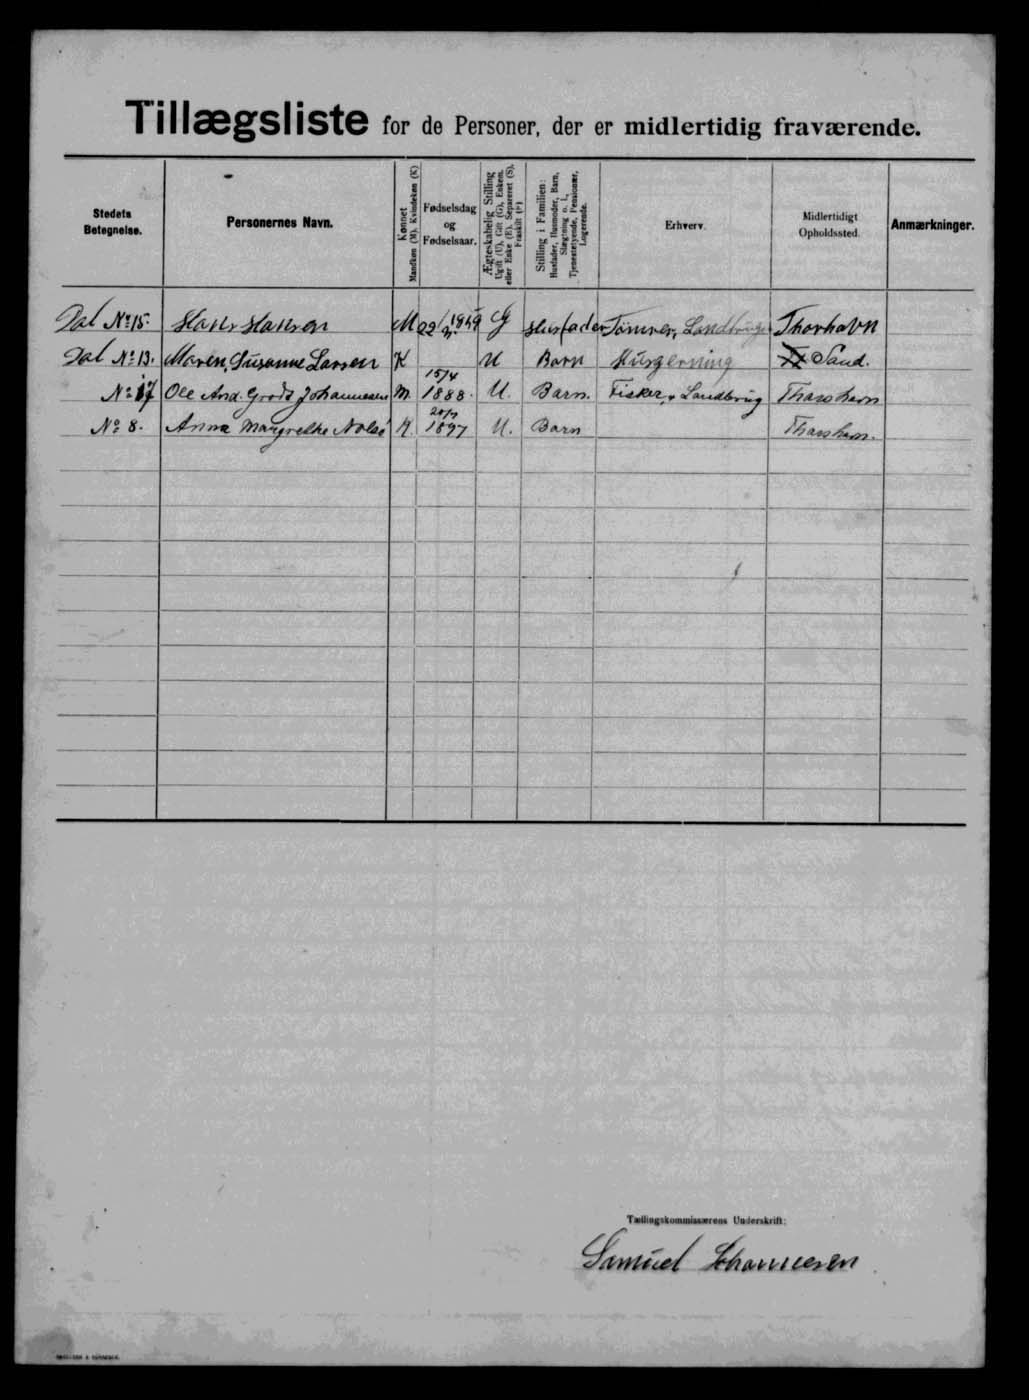 Tillægsliste for de Personer, der er midlertidig fraværende.
Stedets Betegnelse.
Personernes Navn.
Kønnet Mandkøn (M). Kvindekøn (K)
Fødselsdag og Fødselsaar.
Ægteskabelig Stilling Ugift (U), Gift (G), Enkem. eller Enke (E), Separeret (S), Fraskilt (F)
Stilling i Familien: Husfader, Husmoder, Barn, Slægtning o. l., Tjenestetyende, Pensionær, Logerende.
Erhverv.
Midlertidigt Opholdssted.
Anmærkninger.
Dal No 15. Hans Hansen M 22/ 1859 G Husfader Tømrer, Landbruger Thorhavn
Dal No 13. Maren, Susanne Larsen K U Barn Husgerning Sand.
No 17 Ole And. Johannesen M. 15/4 1888. U. Barn. Fisker, Landbrug Thorshavn
No 8. Anna Margrethe Nolsö K. 1897 U. Barn Thorshavn.
Tællingskommissærens Underskrift:
Samuel Johannesen